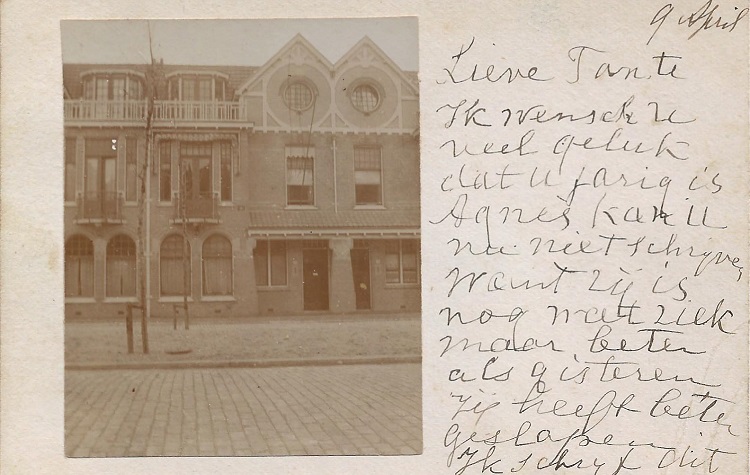 9 April
Lieve Tante
Ik wensch U
veel geluk
dat U jarig is
Agnes kan U
nu niet schrijven
Want zij is
nog wat ziek
maar beter
als gisteren
Zij heeft beter
geslapen
Ik schrijf dit